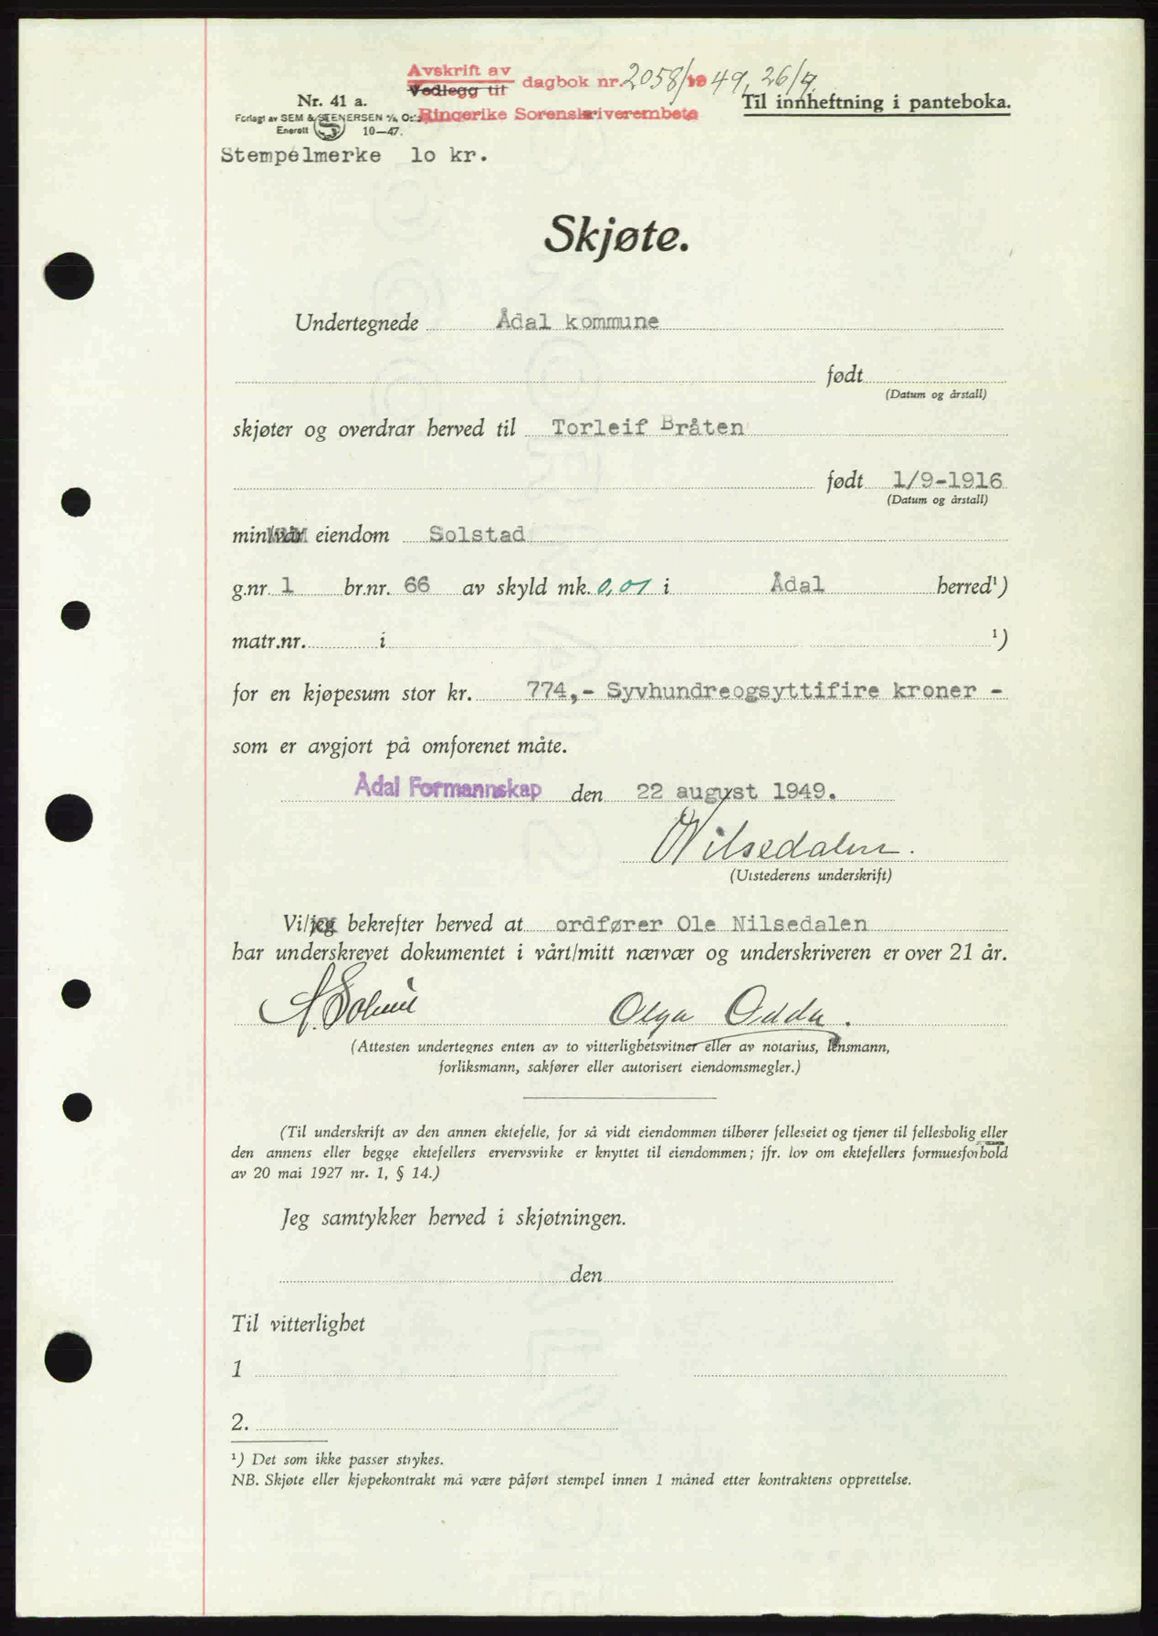 Avskrift av
Vedlegg til dagbok nr. 2058/1949, 26/9
Nr. 41 a. Til innheftning i panteboka.
Forlagt av SEM & STENERSEN A/S, Oslo Ringerike Sorenskriverembete
Enerett 10—47.
Stempelmerke lo kr.
Skjøte.
Undertegnede Ådal kommune
født
(Datum og årstall)
skjøter og overdrar herved til Torleif Bråten
født 1/9-1916
(Datum og årstall)
min/vår eiendom Solstad
g.nr. 1 br.nr. 66 av skyld mk. 0,01 i Ådal herred¹)
matr.nr. i ¹)
for en kjøpesum stor kr. 774,- Syvhundreogsyttifire kroner -
som er avgjort på omforenet måte.
Ådal Formannskap den 22 august 1949.
Nilsedalen.
(Utstederens underskrift)
Vi/jeg bekrefter herved at ordfører Ole Nilsedalen
har underskrevet dokumentet i vårt/mitt nærvær og underskriveren er over 21 år.
Olga Odda.
(Attesten undertegnes enten av to vitterlighetsvitner eller av notarius, lensmann,
forliksmann, sakfører eller autorisert eiendomsmegler.)
(Til underskrift av den annen ektefelle, for så vidt eiendommen tilhører felleseiet og tjener til fellesbolig eller
den annens eller begge ektefellers ervervsvirke er knyttet til eiendommen; jfr. lov om ektefellers formuesforhold
av 20 mai 1927 nr. 1, § 14.)
Jeg samtykker herved i skjøtningen.
den
Til vitterlighet
1
2.
¹) Det som ikke passer strykes.
NB. Skjøte eller kjøpekontrakt må være påført stempel innen 1 måned etter kontraktens opprettelse.